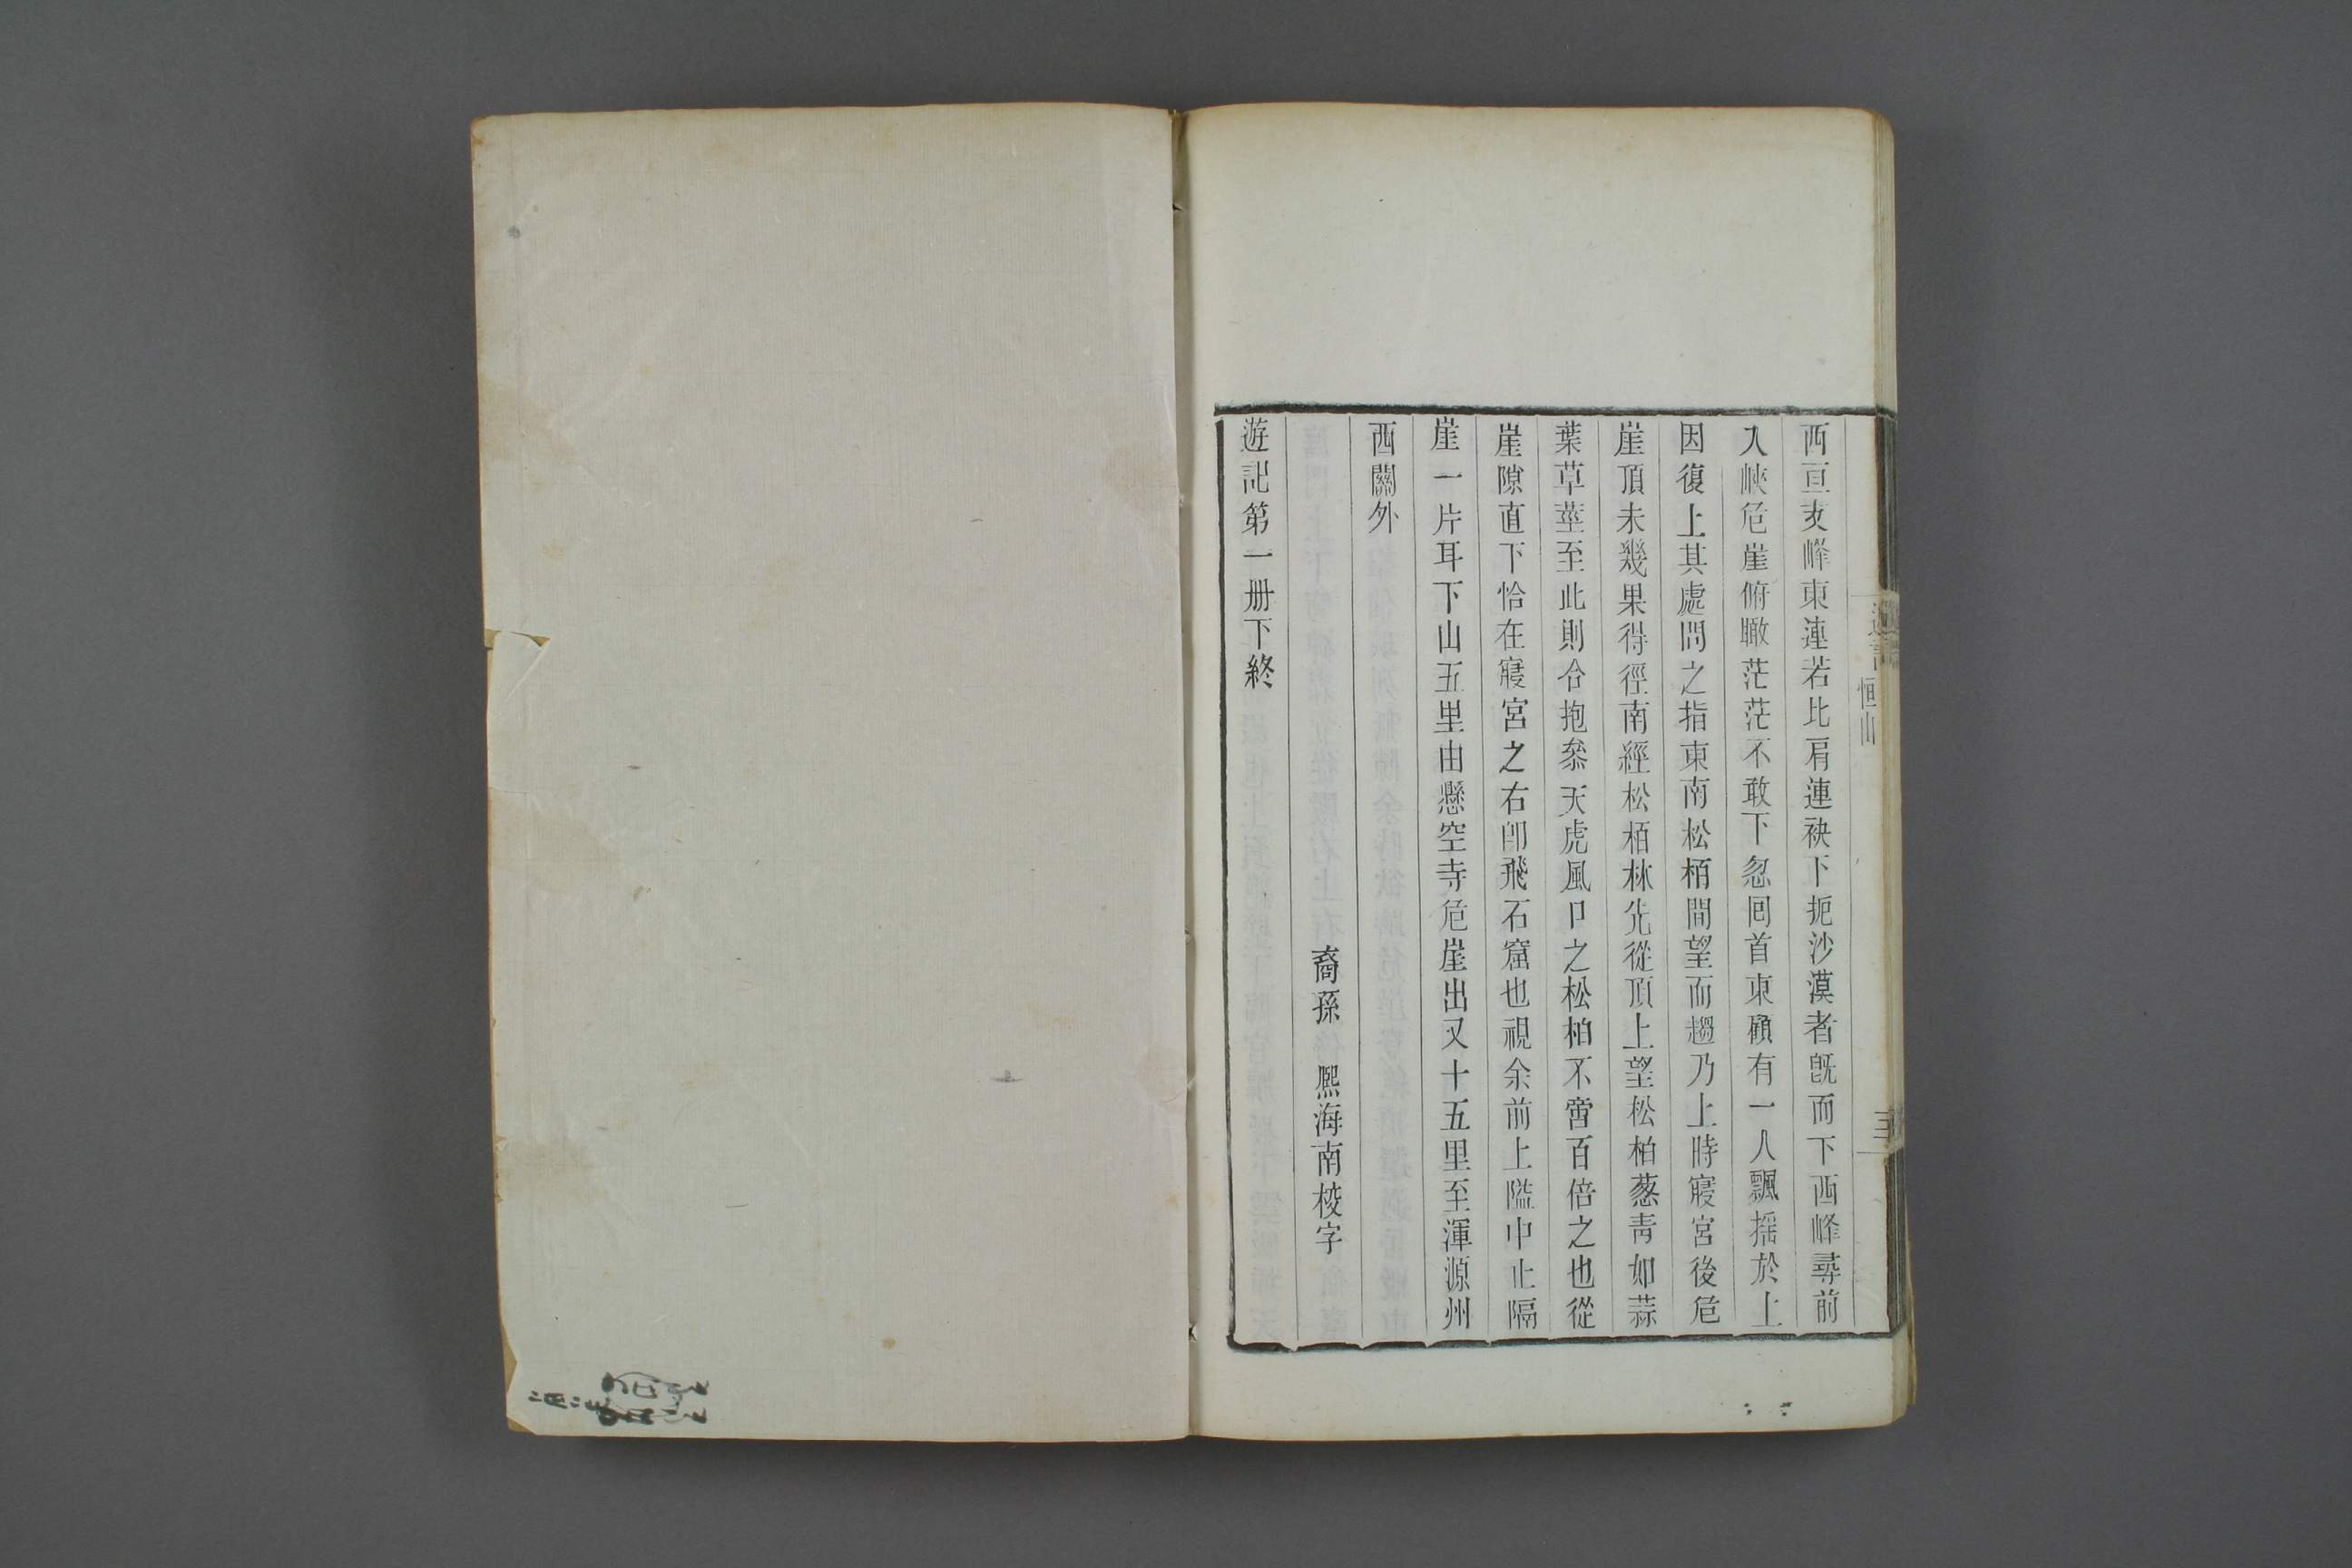 西亘支峰東連若比肩連袂下扼沙漠者旣而下西峰尋前
入峽危崖俯瞰茫茫不敢下忽回首東顧有一人飄搖於上
因復上其處問之指東南松栢間望而趨乃上時寢宮後危
崖頂未幾果得徑南經松栢林先從頂上望松柏葱靑如蒜
葉草莖至此則合抱參天虎風口之松柏不啻百倍之也從
崖隙直下恰在寢宮之右卽飛石窟也視余前上隘中止隔
崖一片耳下山五里由懸空寺危崖出又十五里至渾源州
西關外
裔孫 熙海南校字
遊記第一册下終
恒山